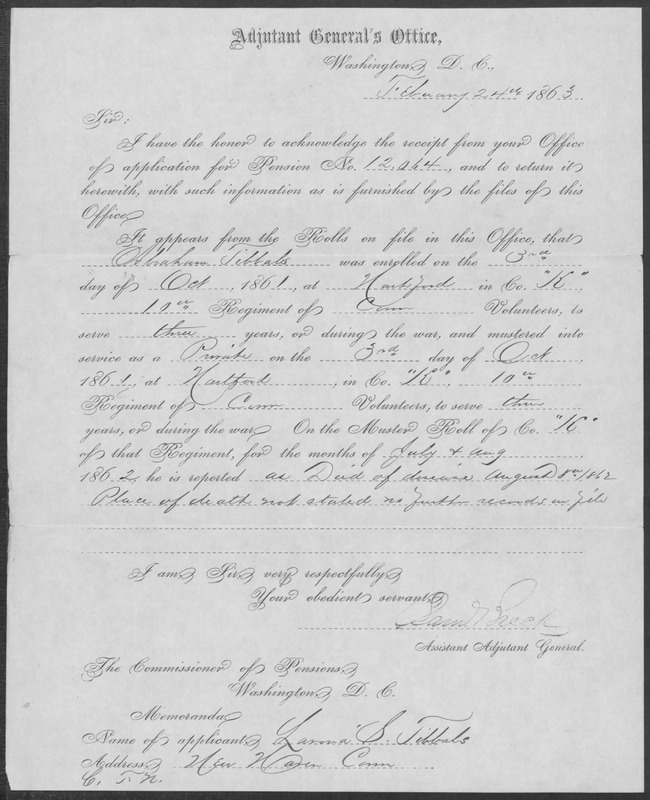 Adjutant General's Office,
Washington, D. C.,
February 24th 1863
Sir:
I have the honor to acknowledge the receipt from your Office
of application for Pension No. 12,064, and to return it
herewith, with such information as is furnished by the files of this
Office.
It appears from the Rolls on file in this Office, that
Abraham Tibbals was enrolled on the 3rd
day of Oct, 1861, at Hartford in Co. "K",
10th Regiment of Conn Volunteers, to
serve three years, or during the war, and mustered into
service as a Private on the 3rd day of Oct
1861, at Hartford, in Co. "K", 10th
Regiment of Conn Volunteers, to serve three
years, or during the war. On the Muster Roll of Co. "K"
of that Regiment, for the months of July & Aug
1862, he is reported as Died of disease August 8th 1862
Place of death not stated no further records on file
I am, Sir, very respectfully,
Your obedient servant,
Saml Breck
Assistant Adjutant General.
The Commissioner of Pensions,
Washington, D. C.
Memoranda
Name of applicant, S. Tibbals
Address, New Haven Conn
C. T. N.